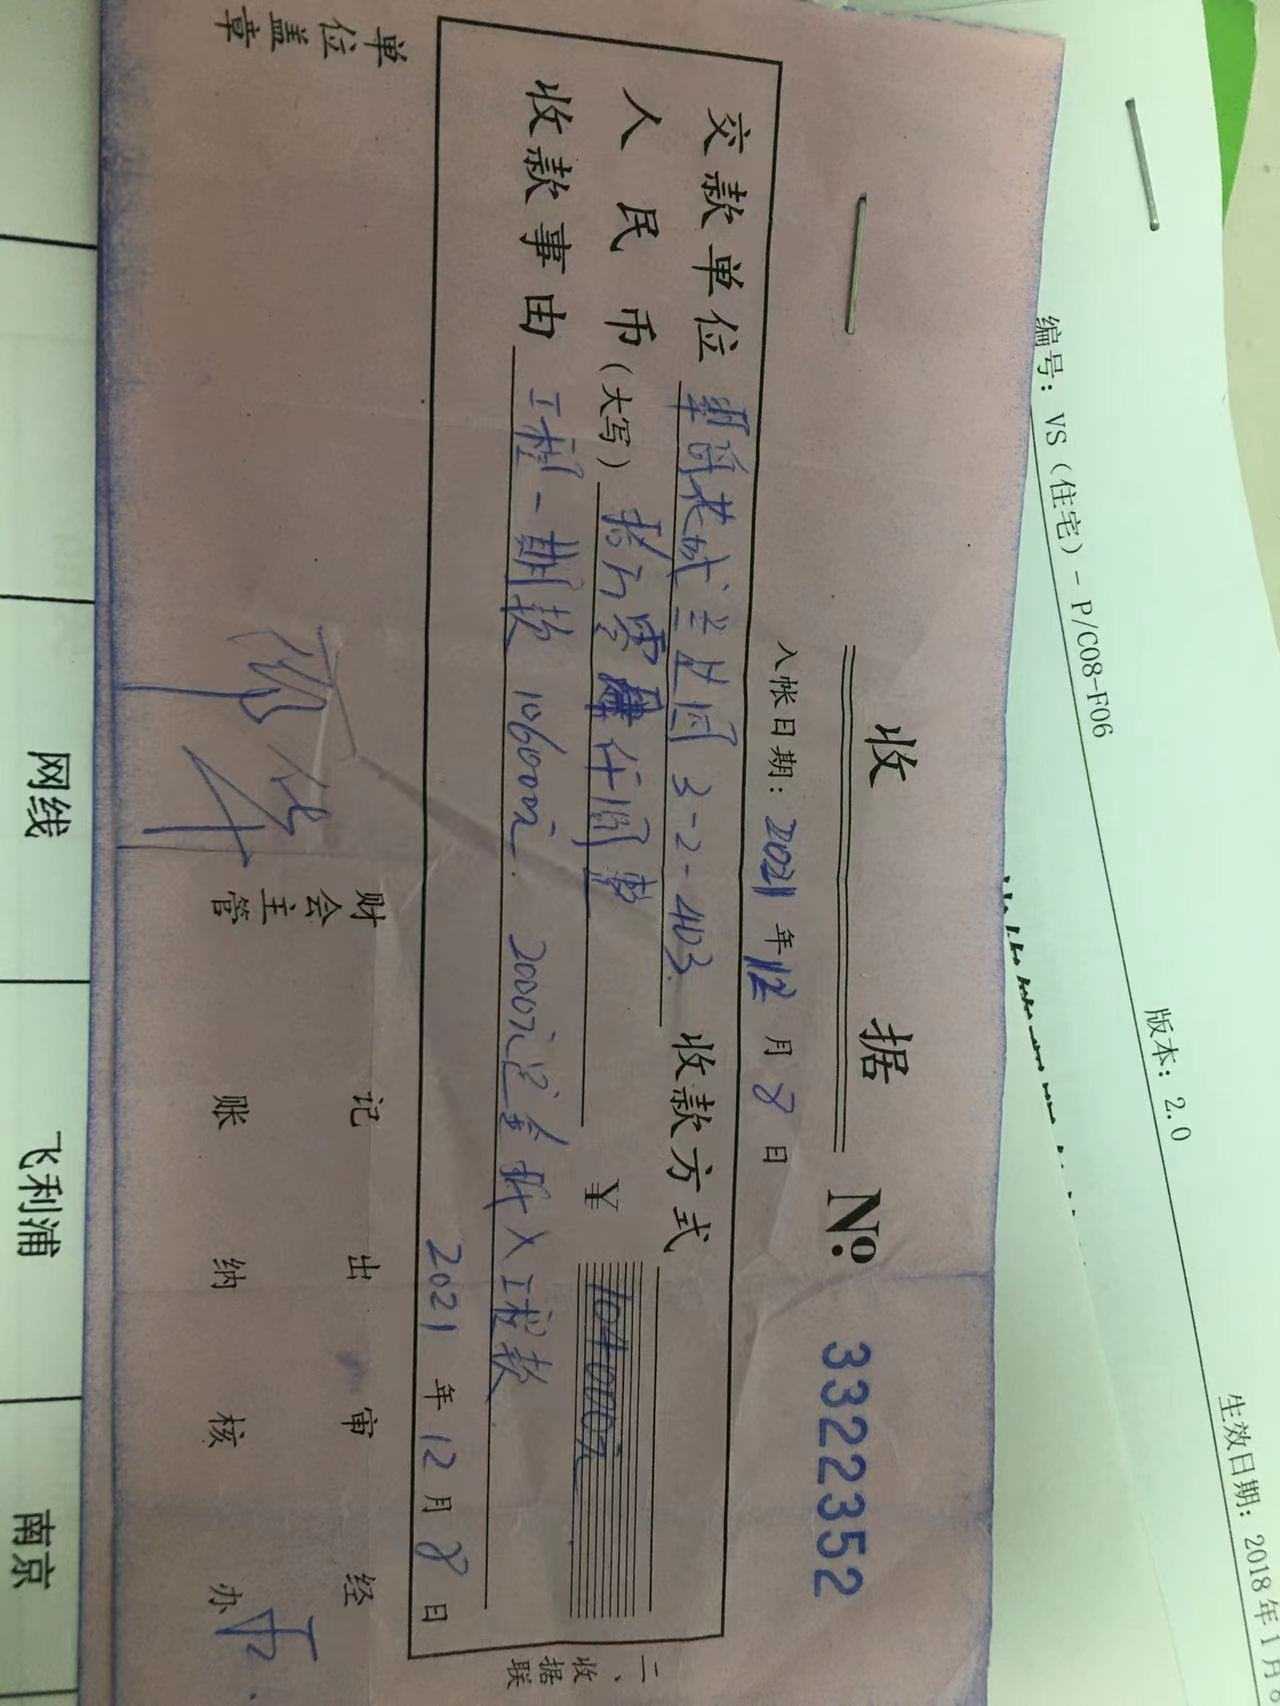 编号：VS（住宅）-P/C08-F06
版本：2.0
生效日期：2018年1月
收 据
№ 3322352
入帐日期：2021年12月8日
交款单位 3-2-403. 收款方式
人民币（大写）拾万零肆仟圆整 ￥104000元
收款事由 工程一期款 106000元. 2000元定金转入工程款
2021年12月8日
二、收据联
单位盖章
财会主管
记账
出纳
审核
经办
网线
飞利浦
南京